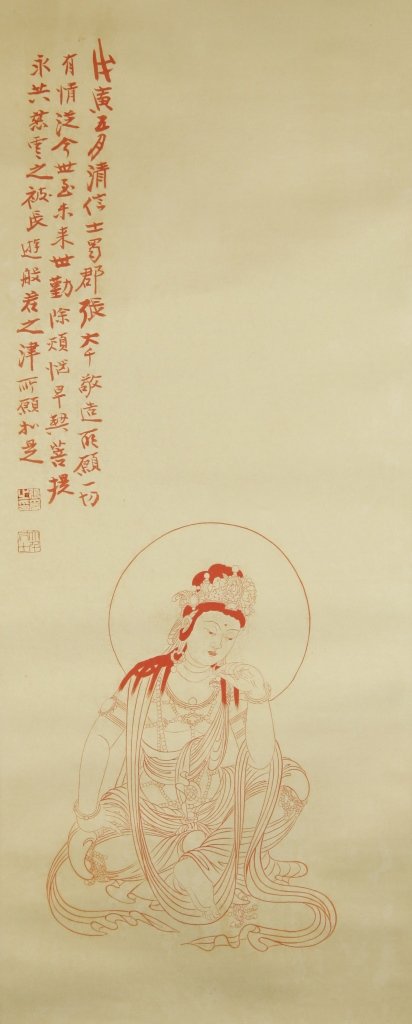 戊寅五月清信士蜀郡張大千敬造所願一切
有情從今世至未來世勤除煩惱早契菩提
永共慈雲之被長遊般若之津所願如是